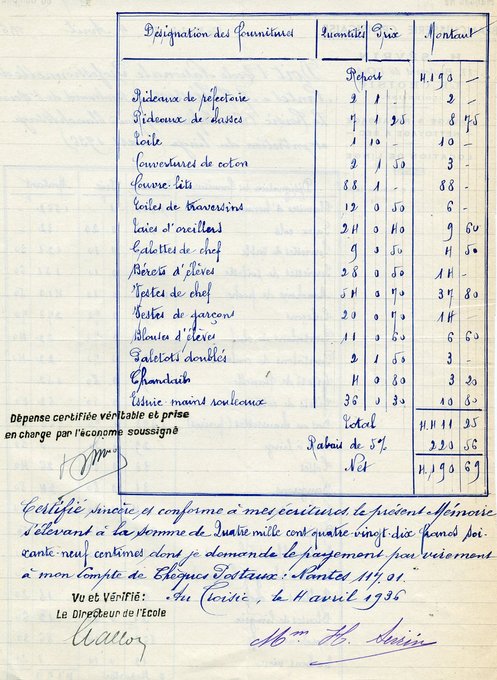 Désignation des fournitures Quantités Prix Montant
Report 4.190 -
Rideaux de réfectoire 2 1 - 2 -
Rideaux de classes 7 1 25 8 75
Toile 1 10 - 10 -
Couvertures de coton 2 1 50 3 -
Couvre-lits 88 1 - 88 -
Toiles de traversins 12 0 50 6 -
Taies d'oreillers 24 0 40 9 60
Calottes de chef 9 0 50 4 50
Bérets d'élèves 28 0 50 14 -
Vestes de chef 54 0 70 37 80
Vestes de garçons 20 0 70 14 -
Blouses d'élèves 11 0 60 6 60
Paletots doublés 2 1 50 3 -
Chandails 4 0 80 3 20
Essuie-mains rouleaux 36 0 30 10 80
Total 4.411 25
Rabais de 5% 220 56
Net 4,190 69
Dépense certifiée véritable et prise
en charge par l'économe soussigné
Certifié sincère et conforme à mes écritures, le présent Mémoire
s'élevant à la somme de Quatre mille cent quatre-vingt-dix francs soi-
xante-neuf centimes dont je demande le payement par virement
à mon Compte de Chèques Postaux: Nantes 117.01.
Au Croisic, le 4 avril 1936
Vu et Vérifié:
Le Directeur de l'Ecole
Mme H.